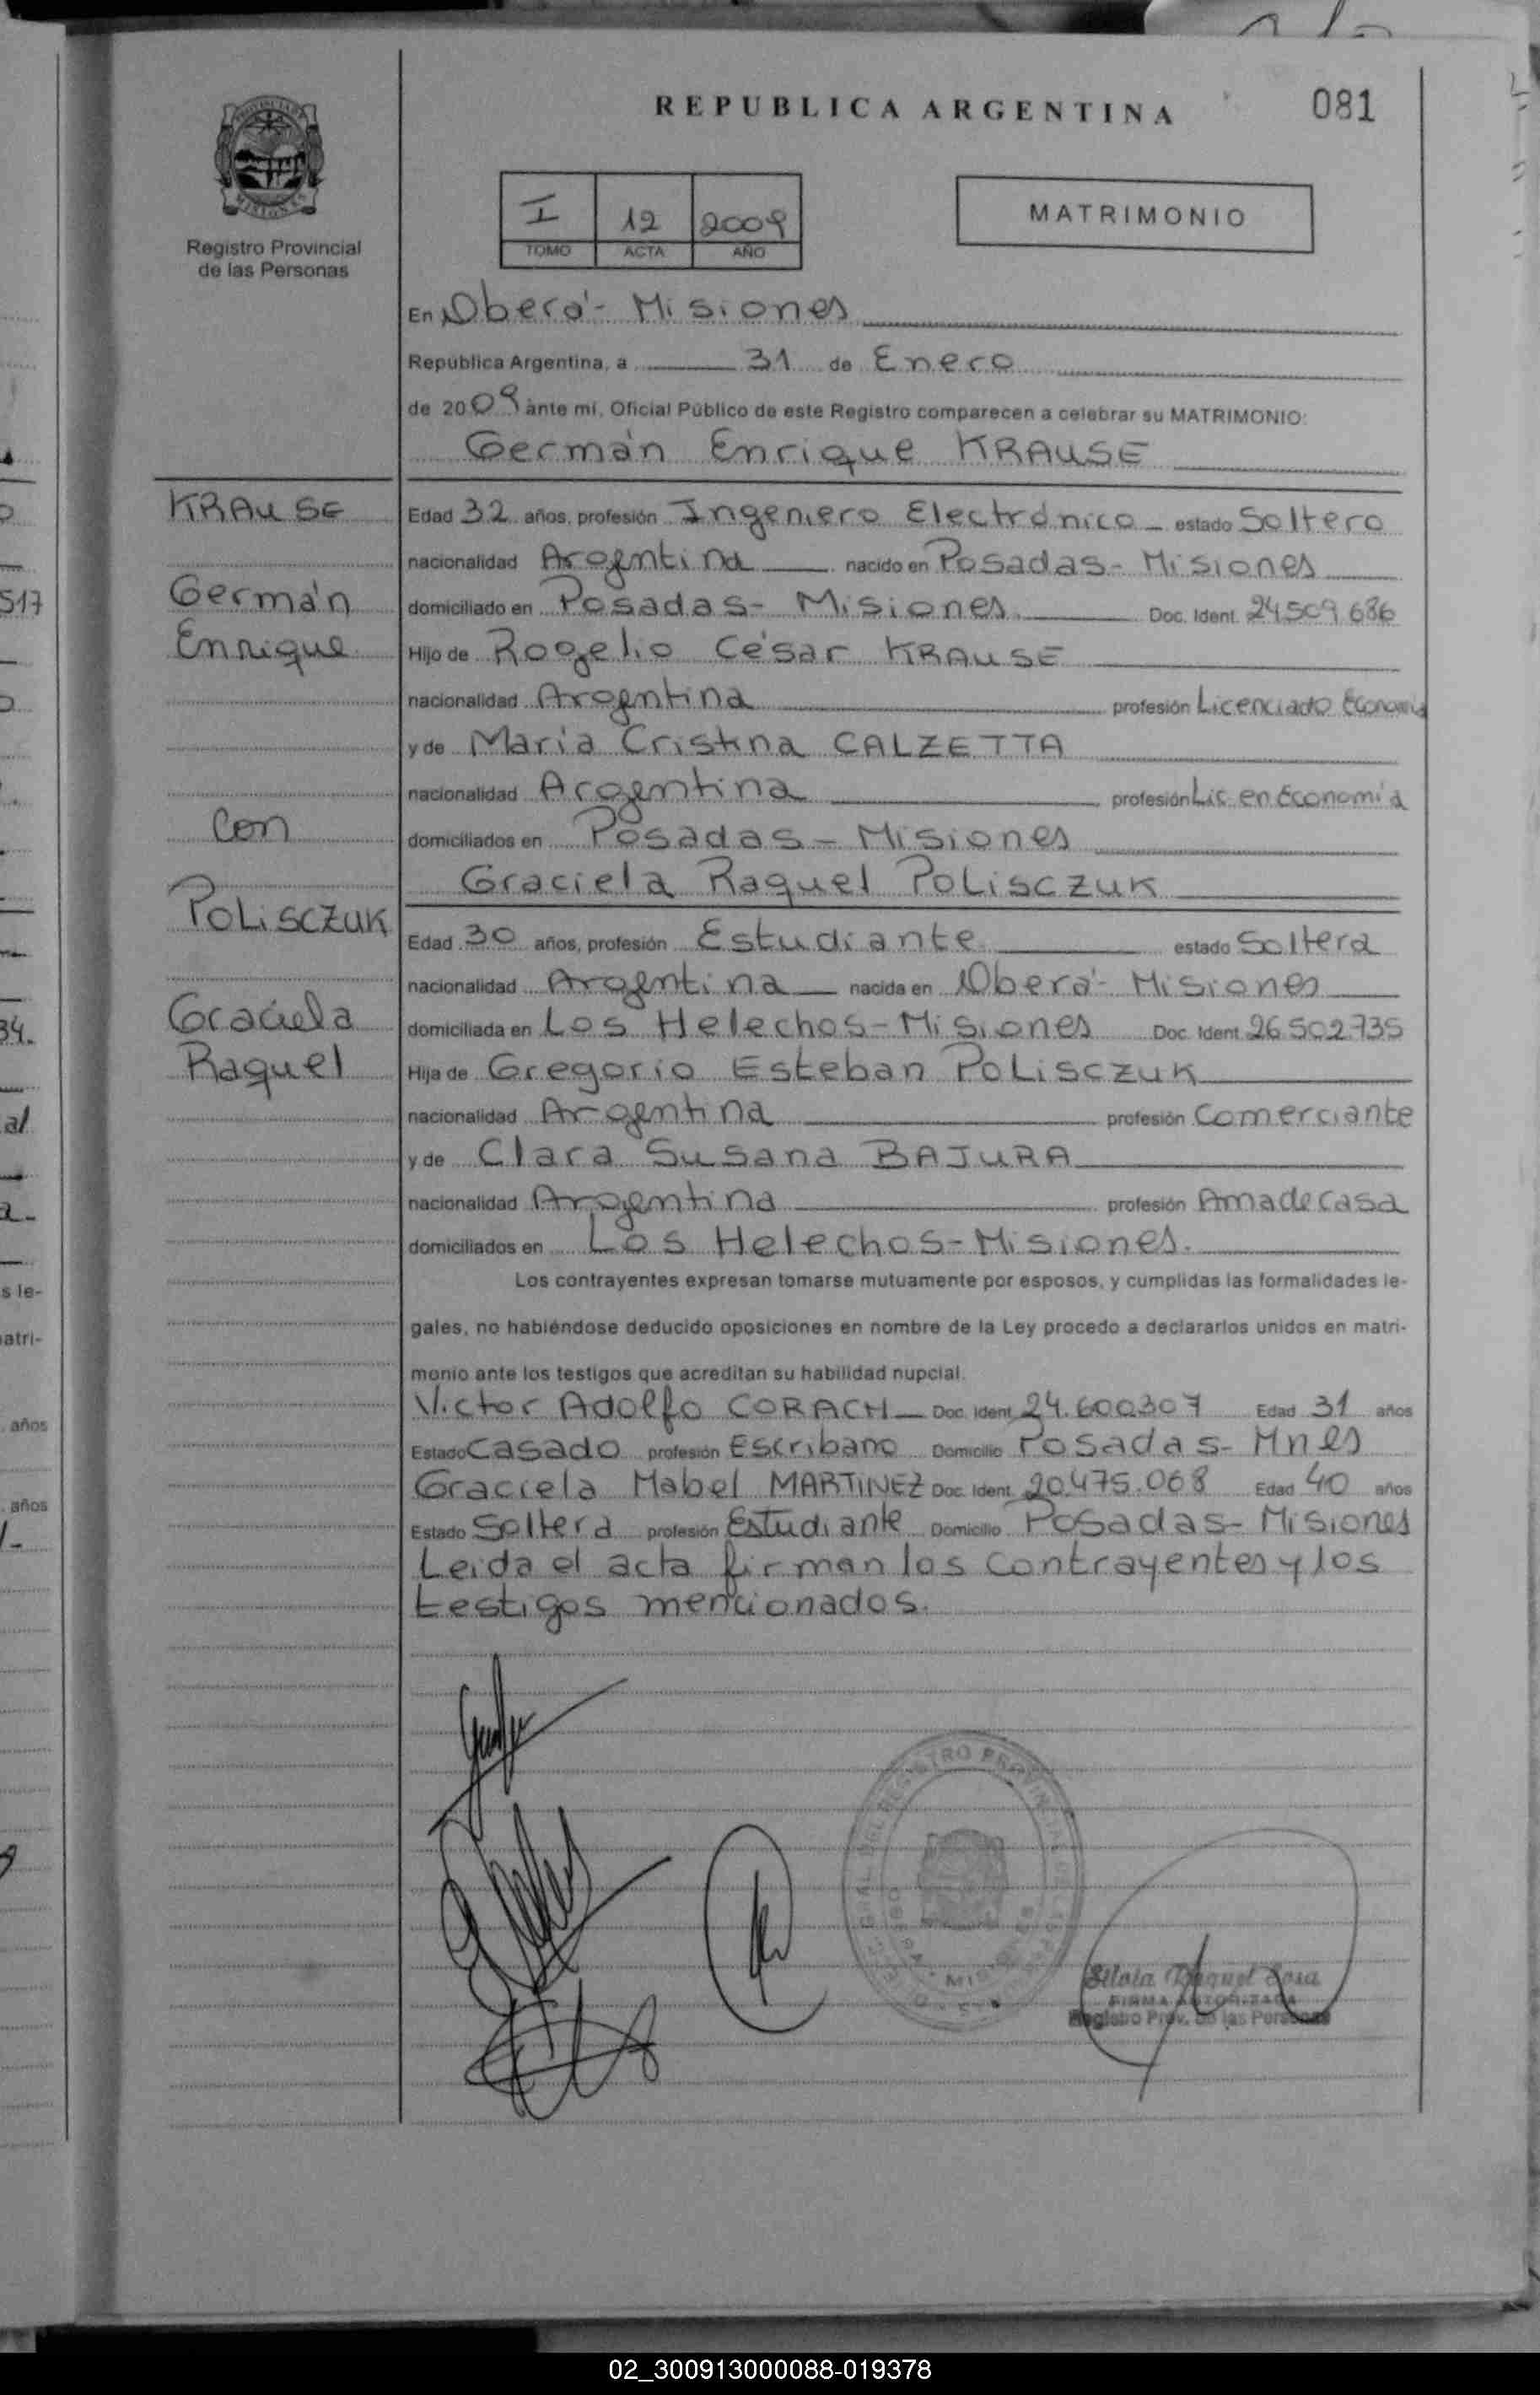 REPUBLICA ARGENTINA
081
PROVINCIA DE
MISIONES
Registro Provincial
de las Personas
I 12 2009
TOMO ACTA AÑO
MATRIMONIO
En Oberá - Misiones
República Argentina, a 31 de Enero
de 2009 ante mí, Oficial Público de este Registro comparecen a celebrar su MATRIMONIO:
Germán Enrique KRAUSE
KRAUSE
Germán
Enrique
con
POLISCZUK
Graciela
Raquel
Edad 32 años, profesión Ingeniero Electrónico - estado Soltero
nacionalidad Argentina nacido en Posadas - Misiones
domiciliado en Posadas - Misiones Doc. Ident. 24.509.686
Hijo de Rogelio César KRAUSE
nacionalidad Argentina profesión Licenciado Economía
y de María Cristina CALZETTA
nacionalidad Argentina profesión Lic. en Economía
domiciliados en Posadas - Misiones
Graciela Raquel POLISCZUK
Edad 30 años, profesión Estudiante estado Soltera
nacionalidad Argentina nacida en Oberá - Misiones
domiciliada en Los Helechos - Misiones Doc. Ident. 26.502.735
Hija de Gregorio Esteban POLISCZUK
nacionalidad Argentina profesión Comerciante
y de Clara Susana BAJURA
nacionalidad Argentina profesión Ama de casa
domiciliados en Los Helechos - Misiones.
Los contrayentes expresan tomarse mutuamente por esposos, y cumplidas las formalidades le-
gales, no habiéndose deducido oposiciones en nombre de la Ley procedo a declararlos unidos en matri-
monio ante los testigos que acreditan su habilidad nupcial.
Victor Adolfo CORACH Doc. Ident. 24.600.307 Edad 31 años
Estado Casado profesión Escribano Domicilio Posadas - Mnes
Graciela Mabel MARTINEZ Doc. Ident. 20.475.068 Edad 40 años
Estado Soltera profesión Estudiante Domicilio Posadas - Misiones
Leida el acta firman los contrayentes y los
testigos mencionados.
REGISTRO PROVINCIAL DE LAS
MISIONES
Raquel Sosa
FIRMA AUTORIZADA
Registro Prov. de las Personas
517
34.
al
a-
s le-
atri-
años
años
02_300913000088-019378